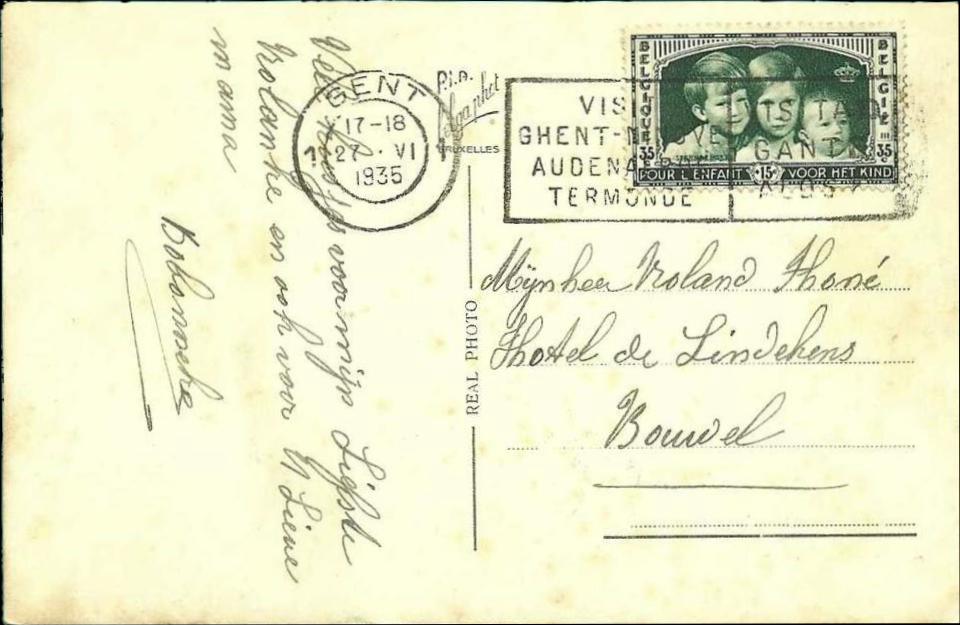 Veel kusjes voor mijn Liefste
Rolanneke en ook voor U Lieve
mama
Bobonneke
GENT
17-18
27 · VI
1935
P.I.B.
BRUXELLES
REAL PHOTO
VIS
GHENT-
AUDENA
TERMONDE
GANT
BELGIQUE
BELGIË
35c
35c
POUR L'ENFANT +15c VOOR HET KIND
Mijnheer Roland Thoné
Hotel de Lindekens
Bouwel